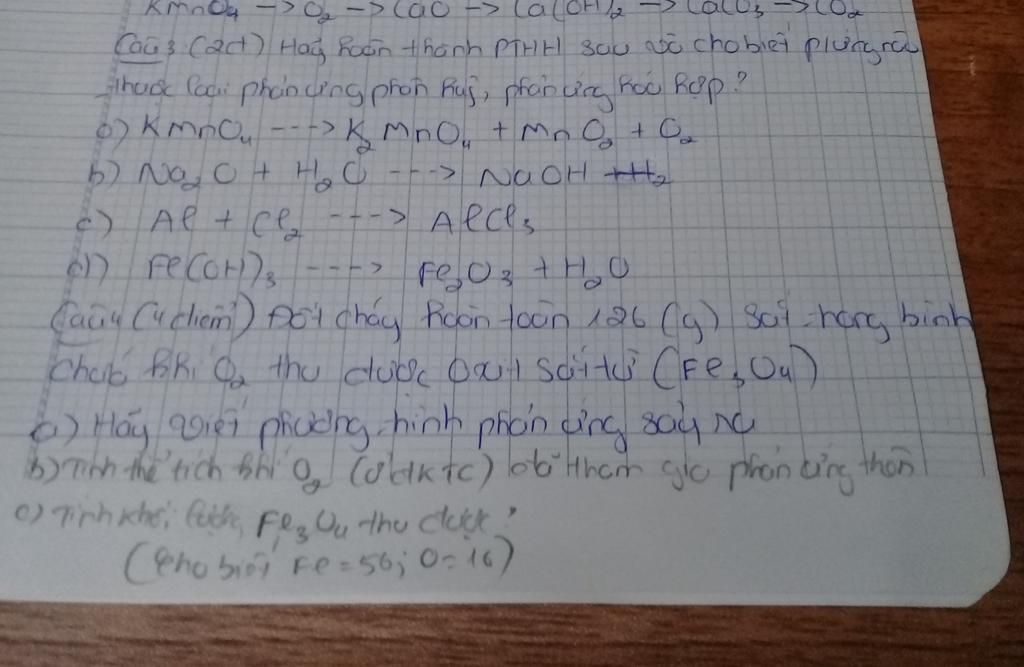 KMnO₄ → O₂ → CaO → Ca(OH)₂ → CaCO₃ → CO₂
Câu 3 (2đ) Hãy hoàn thành PTHH sau và cho biết p/ứng nào
thuộc loại phản ứng phân huỷ, phản ứng hoá hợp?
a) KMnO₄ ---> K₂MnO₄ + MnO₂ + O₂
b) Na₂O + H₂O ---> NaOH
c) Al + Cl₂ ---> AlCl₃
d) Fe(OH)₃ ---> Fe₂O₃ + H₂O
Câu 4 (4 điểm) Đốt cháy hoàn toàn 126 (g) sắt trong bình
chứa khí O₂ thu được Oxit sắt từ (Fe₃O₄)
a) Hãy viết phương trình phản ứng sảy ra
b) Tính thể tích khí O₂ (ở đktc) đã tham gia phản ứng trên
c) Tính khối lượng Fe₃O₄ thu được?
(Cho biết Fe = 56; O = 16)